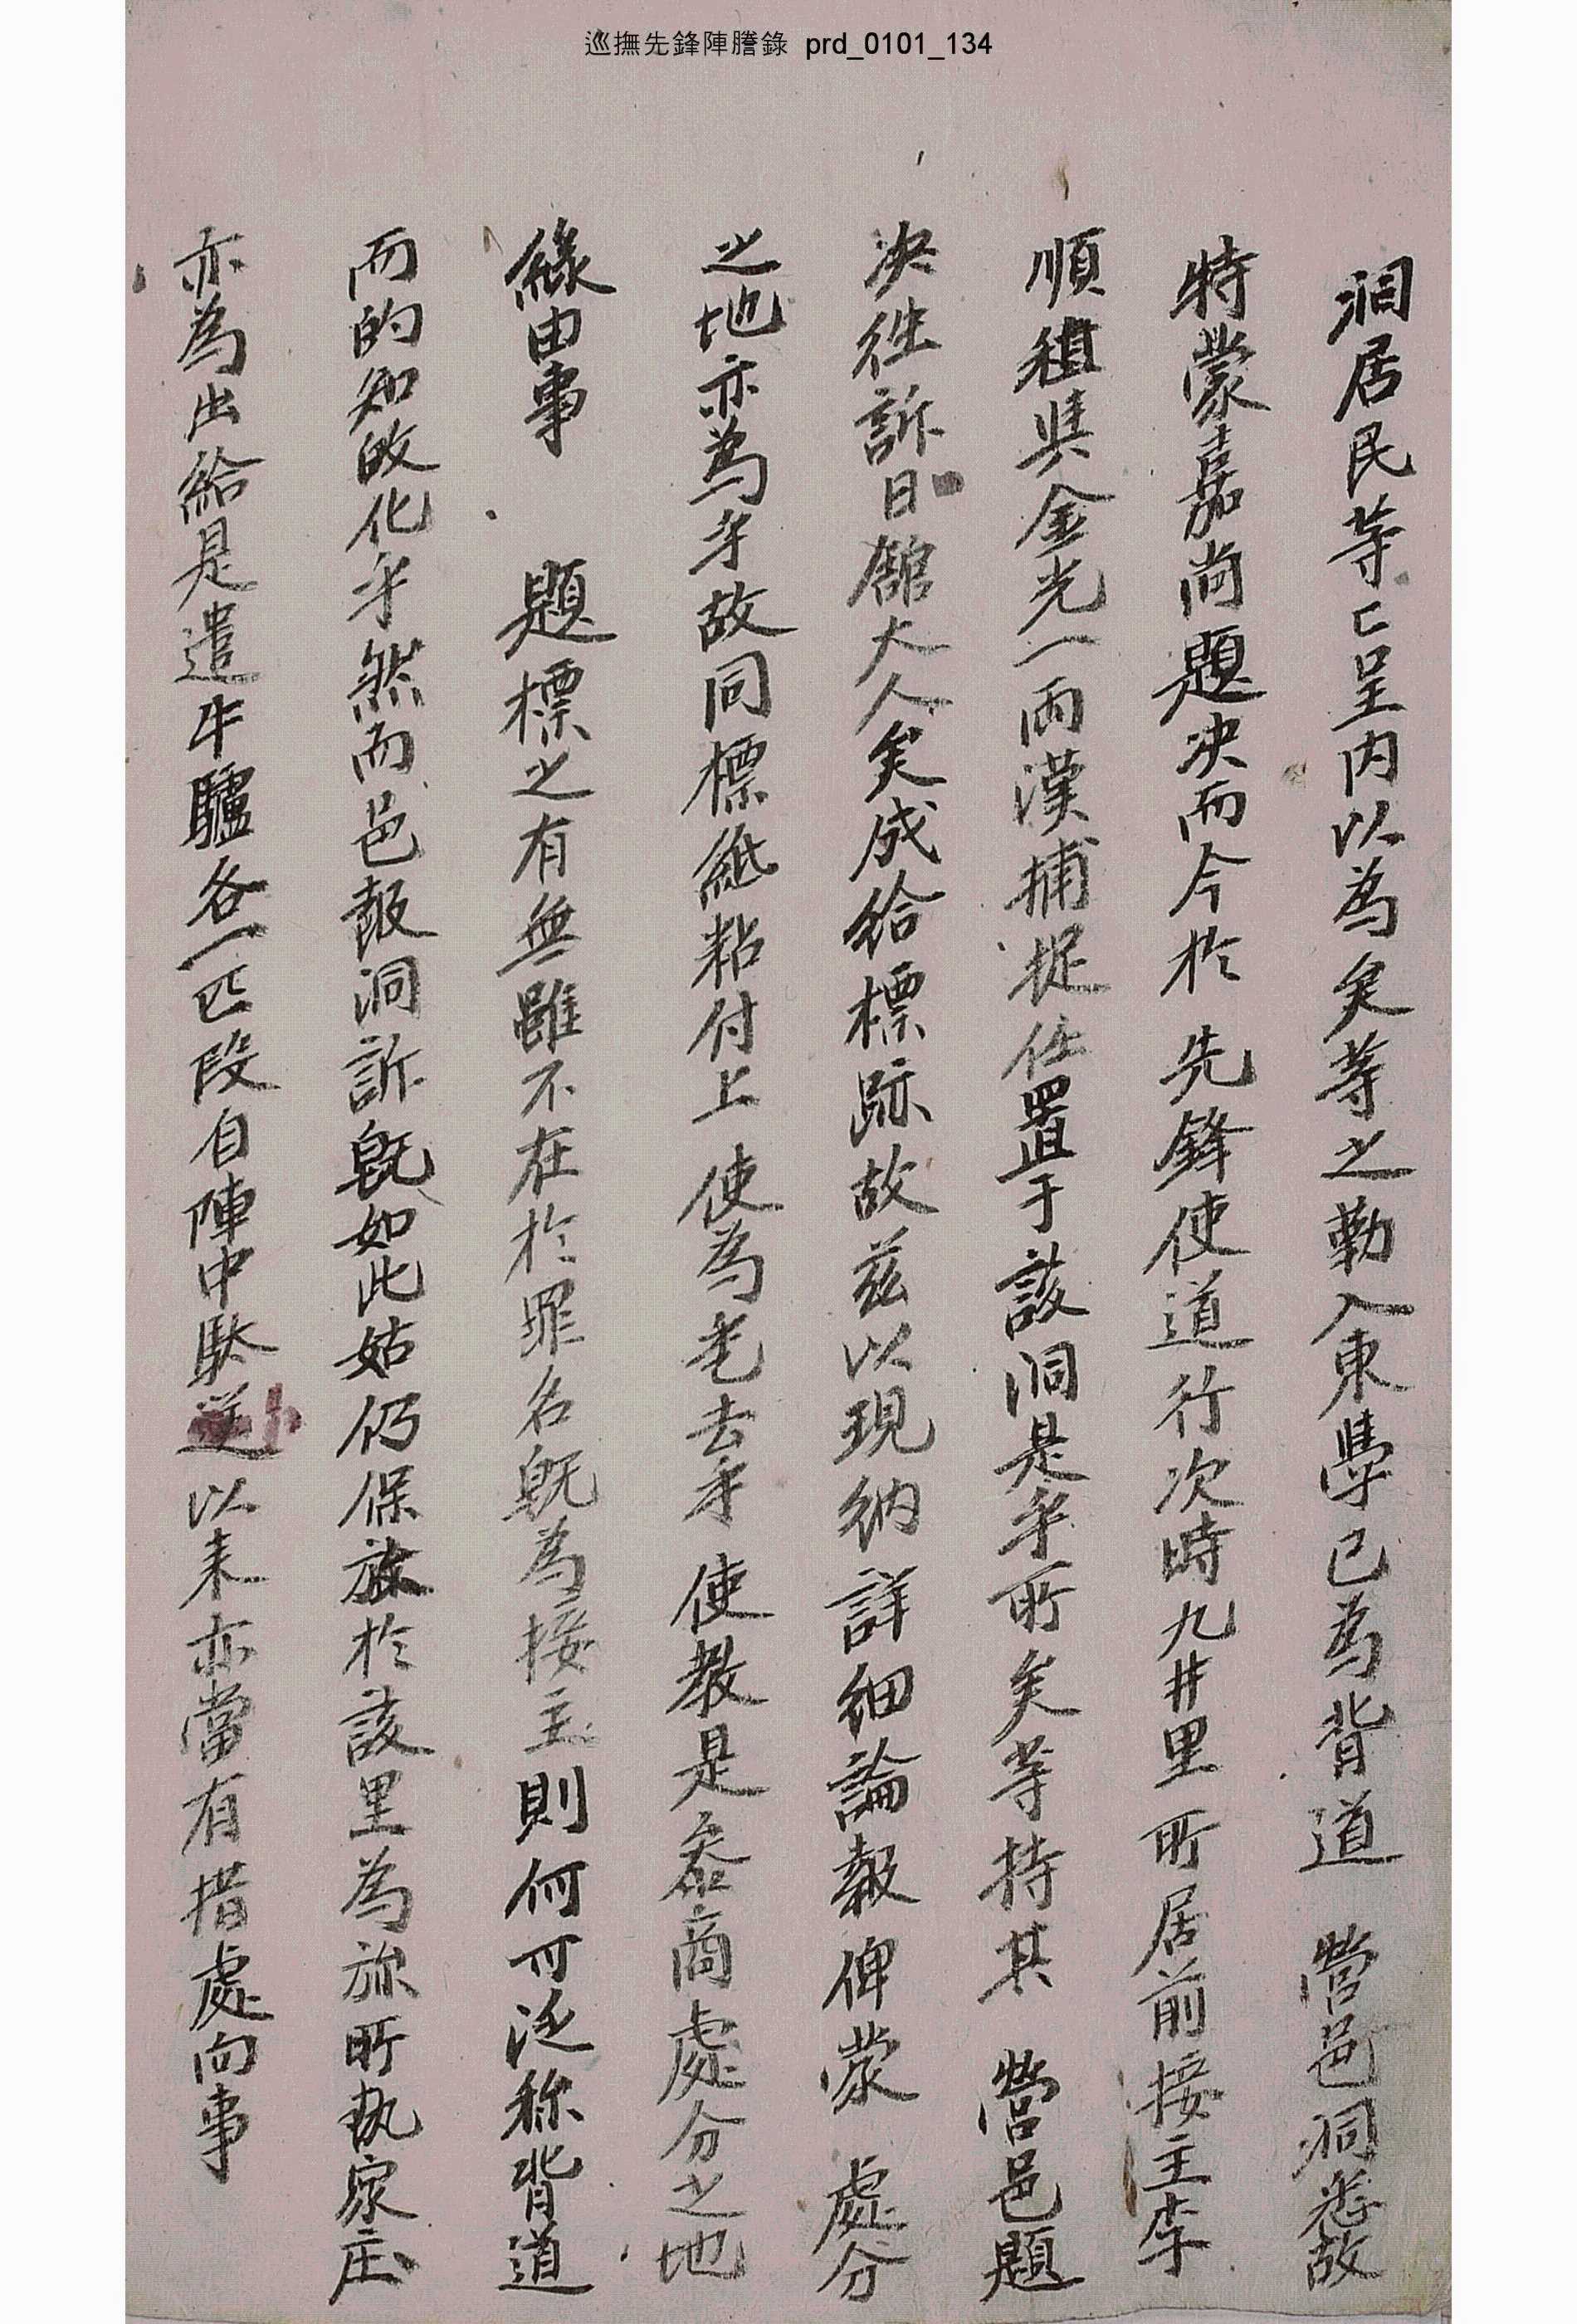 巡撫先鋒陣謄錄 prd_0101_134
洞居民等亡呈內以為矣等之勒入東學已為背道 營邑洞悉故
特蒙嘉尚題决而今於 先鋒使道行次時九井里所居前接主李
順祖與金光一兩漢捕捉仕置于該洞是乎所矣等持其 營邑題
决徃訴日館大人矣成給標跡故玆以現納詳細論報俾蒙 處分
之地亦為乎故同標紙粘付上使為㢱去乎 使教是叅商處分之地
緣由事 題標之有無雖不在於罪名旣為接主則何可泛称背道
而的知改化乎然而邑報洞訴旣如此姑仍保放於該里為旀所執家庄
亦為出給是遣牛驢各一匹段自陣中駄送以来亦當有措處向事